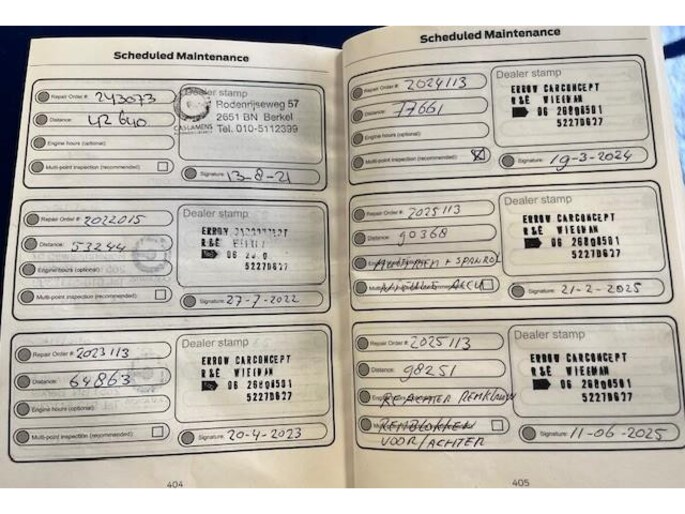 Scheduled Maintenance
Repair Order #: 243073
Distance: 42 640
Engine hours (optional):
Multi-point inspection (recommended):
Dealer stamp
Rodenrijseweg 57
2651 BN Berkel
Tel. 010-5112399
CASLAMENS
Signature: 13-8-21
Repair Order #: 2022015
Distance: 53244
Engine hours (optional):
Multi-point inspection (recommended):
Dealer stamp
ERROW
R&E
06
52270627
Signature: 27-7-2022
Repair Order #: 2023113
Distance: 64863
Engine hours (optional):
Multi-point inspection (recommended):
Dealer stamp
ERROW CARCONCEPT
R&E WIELMAN
06 26808501
52270627
Signature: 20-4-2023
404
Scheduled Maintenance
Repair Order #: 2024113
Distance: 77661
Engine hours (optional):
Multi-point inspection (recommended):
Dealer stamp
ERROW CARCONCEPT
R&E WIELMAN
06 26808501
52270627
Signature: 19-3-2024
Repair Order #: 2025113
Distance: 90368
+ SPANROL
NIEUWE ACCU
Dealer stamp
ERROW CARCONCEPT
R&E WIELMAN
06 26808501
52270627
Signature: 21-2-2025
Repair Order #: 2025113
Distance: 98251
ACHTER
REMBLOKKEN
VOOR/ACHTER
Dealer stamp
ERROW CARCONCEPT
R&E WIELMAN
06 26808501
52270627
Signature: 11-06-2025
405